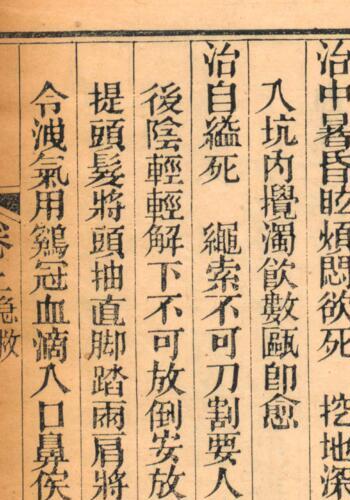 治中暑昏眩煩悶欲死　挖地深
入坑內攪濁飲數甌即愈
治自縊死　繩索不可刀割要人
後陰輕輕解下不可放倒安放
提頭髮將頭抽直脚踏兩肩將
令洩氣用鷄冠血滴入口鼻俟
卷二急救